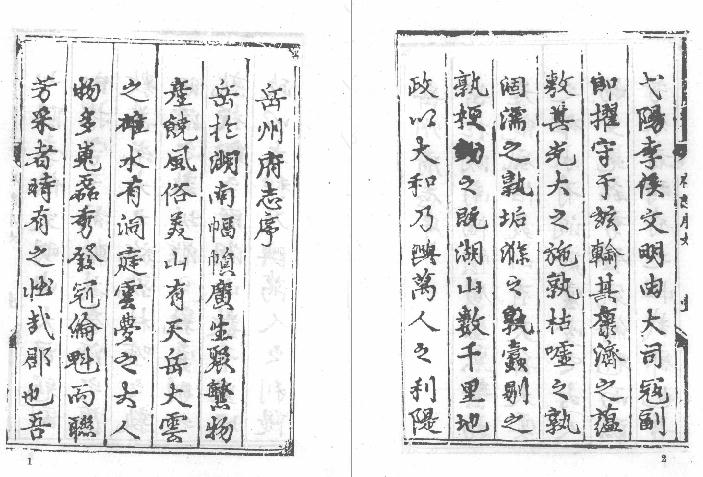 岳州府志序
岳於湖南幅幀廣生聚繁物
產饒風俗美山有天岳大雲
之雄水有洞庭雲夢之大人
物多嵬磊秀發冠倫魁而聯
芳采者時有之壯哉郡也吾
1
弋陽李侯文明由大司寇副
即擢守于茲輸其康濟之蘊
敷其光大之施孰枯噓之孰
涸濡之孰垢滌之孰蠹剔之
孰梗之既湖山數千里地
政以大和乃興萬人之利隄
2